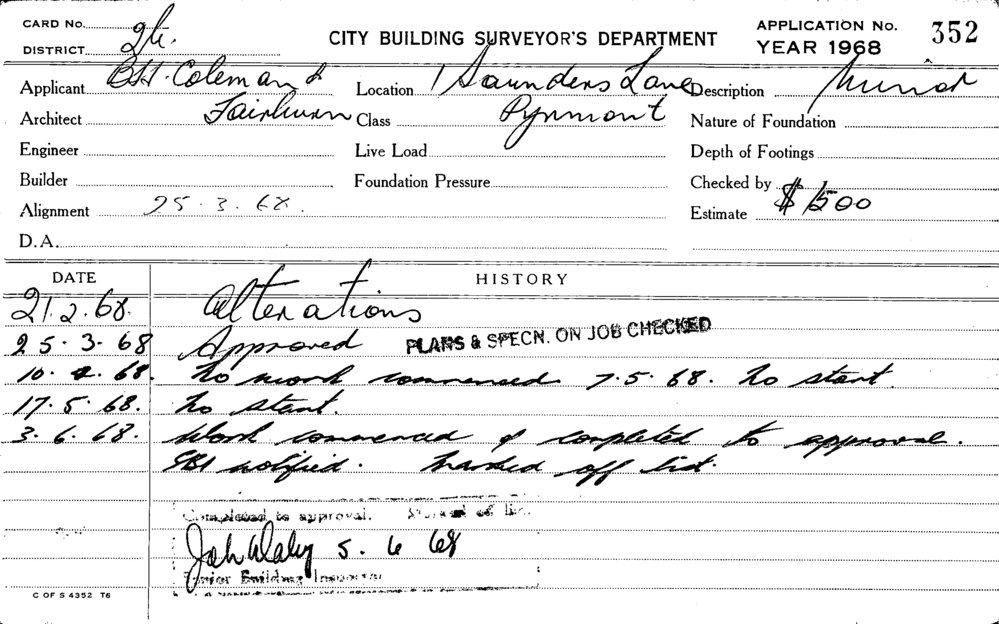 CARD No. CITY BUILDING SURVEYOR'S DEPARTMENT APPLICATION No. 352
DISTRICT YEAR 1968
Applicant B.H. Coleman & Location 1 Saunders Lane Description Minor
Architect Fairburn Class Pyrmont Nature of Foundation
Engineer Live Load Depth of Footings
Builder Foundation Pressure Checked by
Alignment 25.3.68. Estimate $1500
D.A.
DATE HISTORY
21.2.68. Alterations
25.3.68 Approved PLANS & SPECN. ON JOB CHECKED
10.4.68. No work commenced. 7.5.68. No start.
17.5.68. No start.
3.6.68. Work commenced & completed to approval.
notified. Marked off list.
Completed to approval. Marked off list.
5.6.68
Building Inspector
C OF S 4352 T6